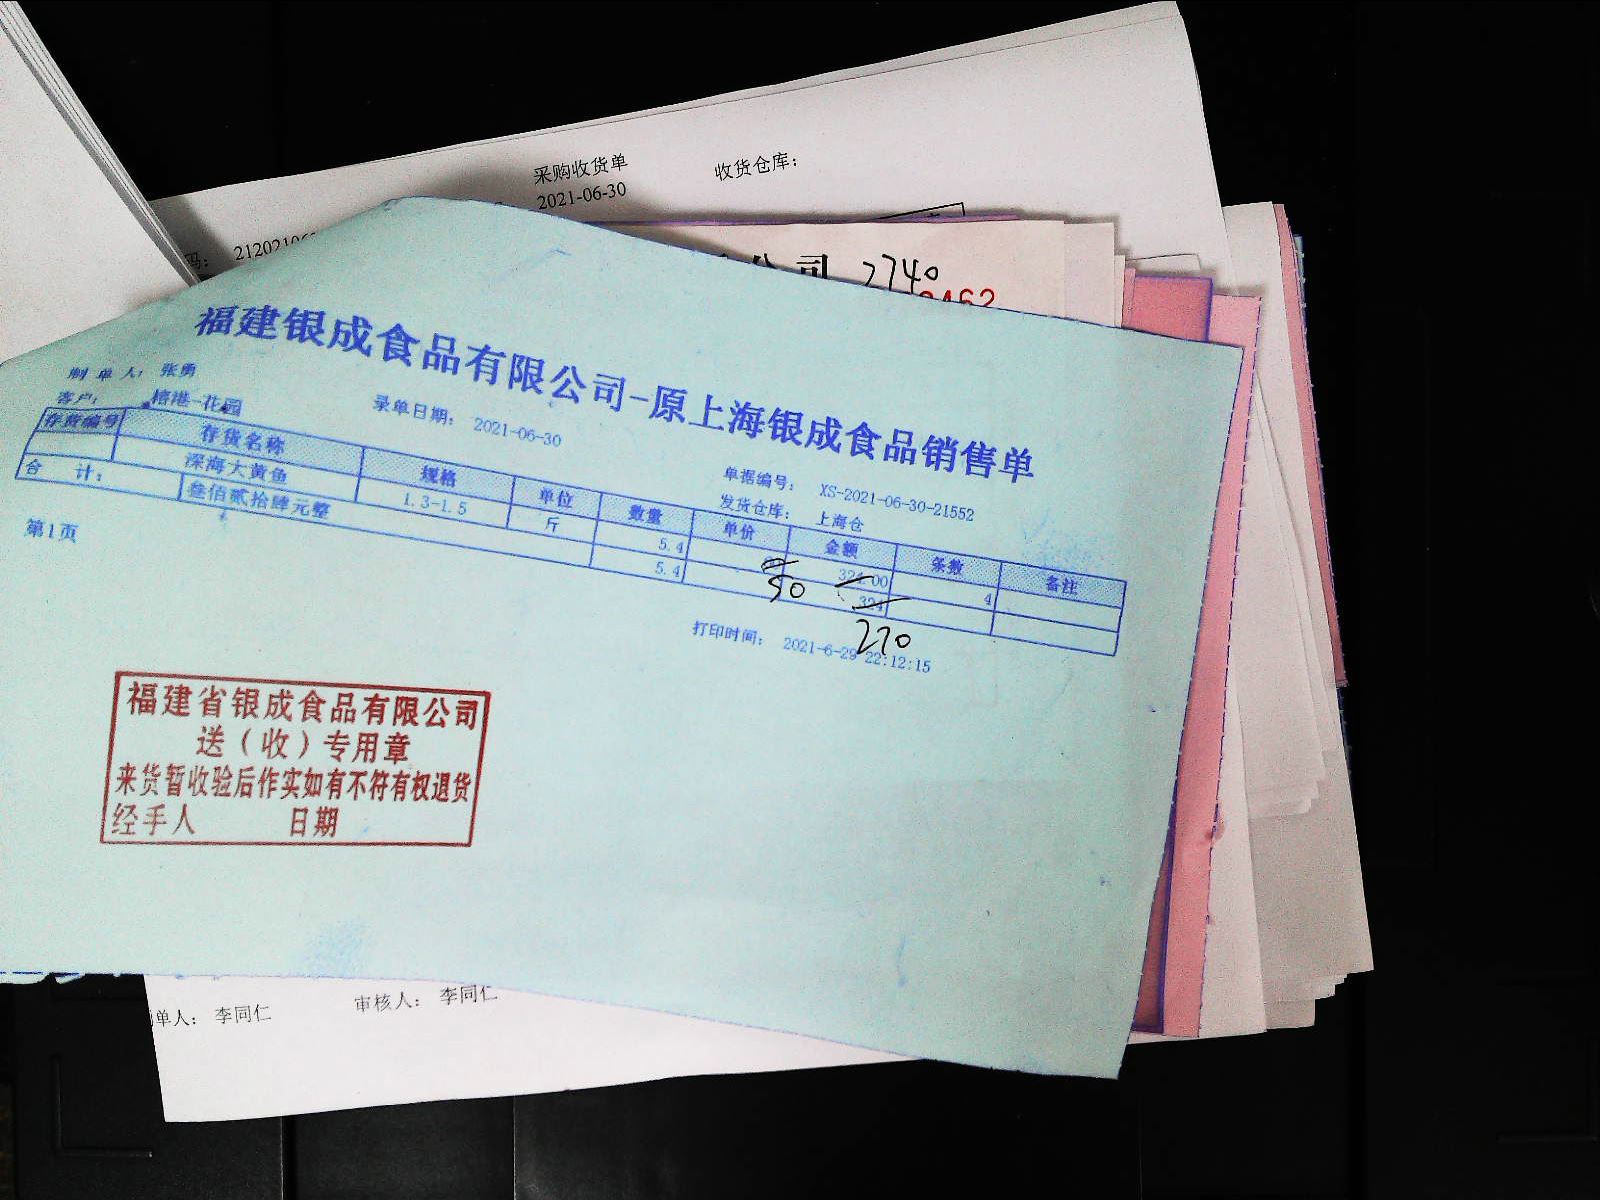 采购收货单
2021-06-30
收货仓库：
码：
公司 2740
福建银成食品有限公司-原上海银成食品销售单
制单人： 张勇
客户： 榕港-花园
录单日期： 2021-06-30
单据编号： XS-2021-06-30-21552
发货仓库： 上海仓
存货编号 存货名称 规格 单位 数量 单价 金额 条数 备注
深海大黄鱼 1.3-1.5 斤 5.4 324.00 4
合 计： 叁佰贰拾肆元整 5.4 324
50
270
第1页
打印时间： 2021-6-29 22:12:15
福建省银成食品有限公司
送（收）专用章
来货暂收验后作实如有不符有权退货
经手人 日期
单人： 李同仁 审核人： 李同仁